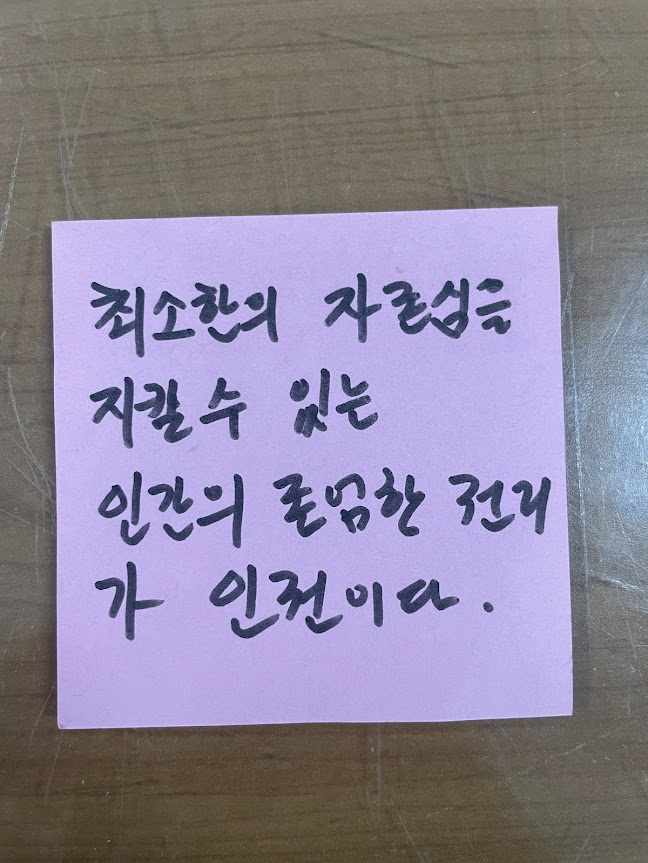 최소한의 자존심을
지킬 수 있는
인간의 존엄한 권리
가 인권이다.